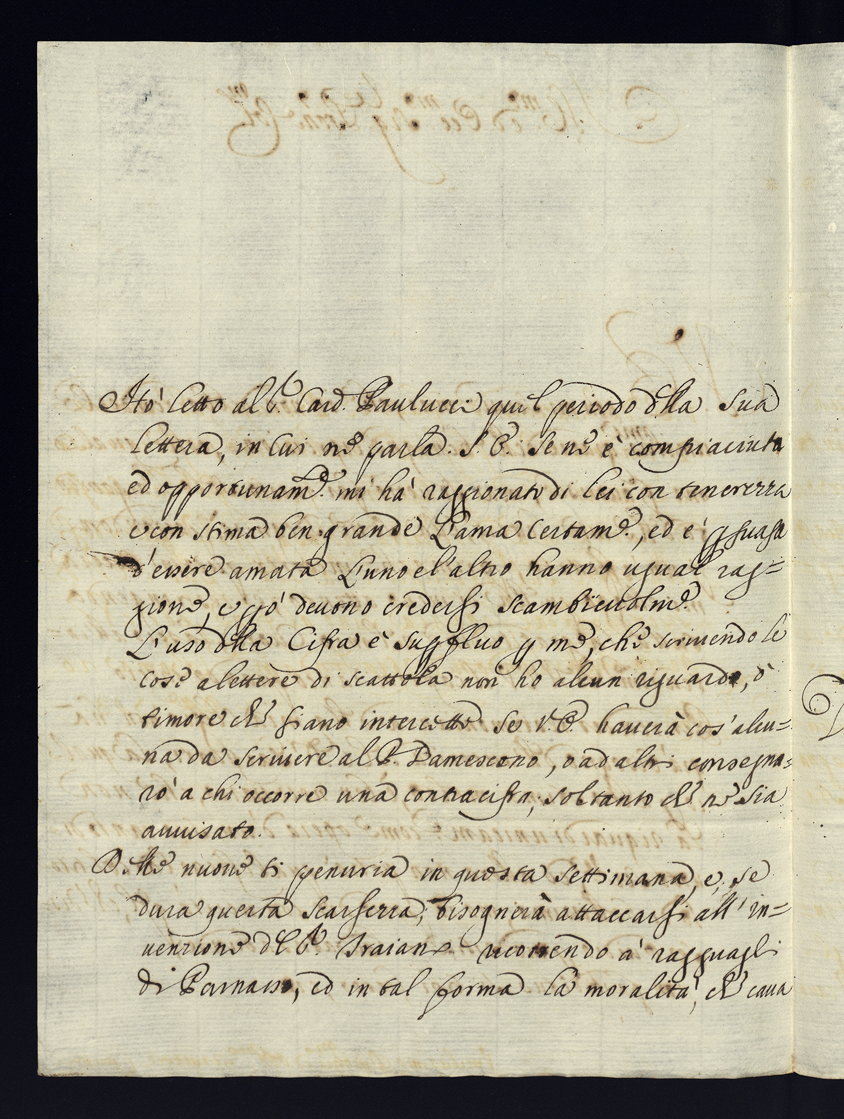 Hò letto al S.r Card. Paulucci qui il periodo d'lla Sua
lettera, in cui ne parla. S. E. se ne è compiaciuta
ed opportunam.e mi hà raggionato di lei con tenerezza
e con stima ben grande L'ama certam.e, ed è p̱suasa
d'essere amata L'uno e l'altro hanno ugual rag=
gione, e p̱ò devono credersi scambievolm.e
L'uso d'lla Cifra è sup̱fluo p̱ me, che scrivendo le
cose a lettere di scattola non ho alcun riguardo, ò
timore ch' siano intercette Se V.E. haverà cos' alcu=
na da scrivere al P. Damasceno, o ad altri consegna=
rò a chi occorre una contracifra, soltanto ch' ne sia
avvisato.
D. nuove ti penuria in questa settimana, e, se
dura questa scarsezza, bisognerà attaccarsi all' in=
venzione d'l S.r Traiano ricorrendo a' ragguagli
di Parnaso, ed in tal forma la moralità, ch' cava